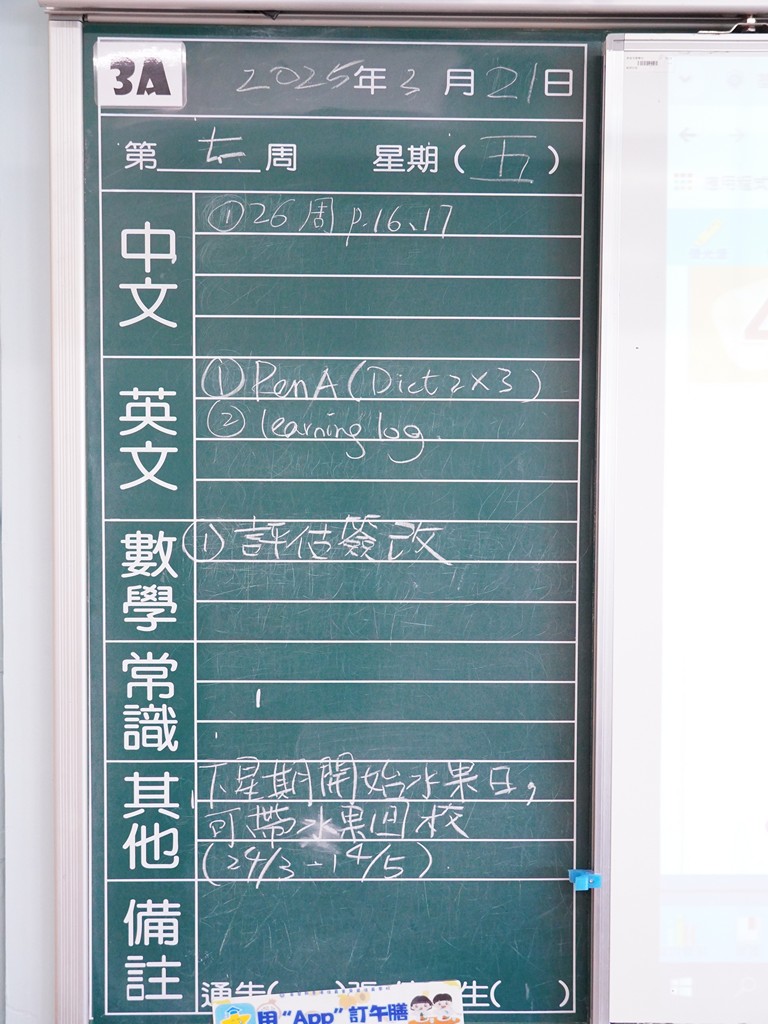 3A
2025年3月21日
第 七 周 星期(五)
中文
①26周 p.16、17
英文
①PenA(Dict2×3)
②learning log.
數學
①評估簽改
常識
其他
下星期開始水果日,
可帶水果回校
(24/3-14/5).
備註
通告( 生( )
用"App"訂午膳